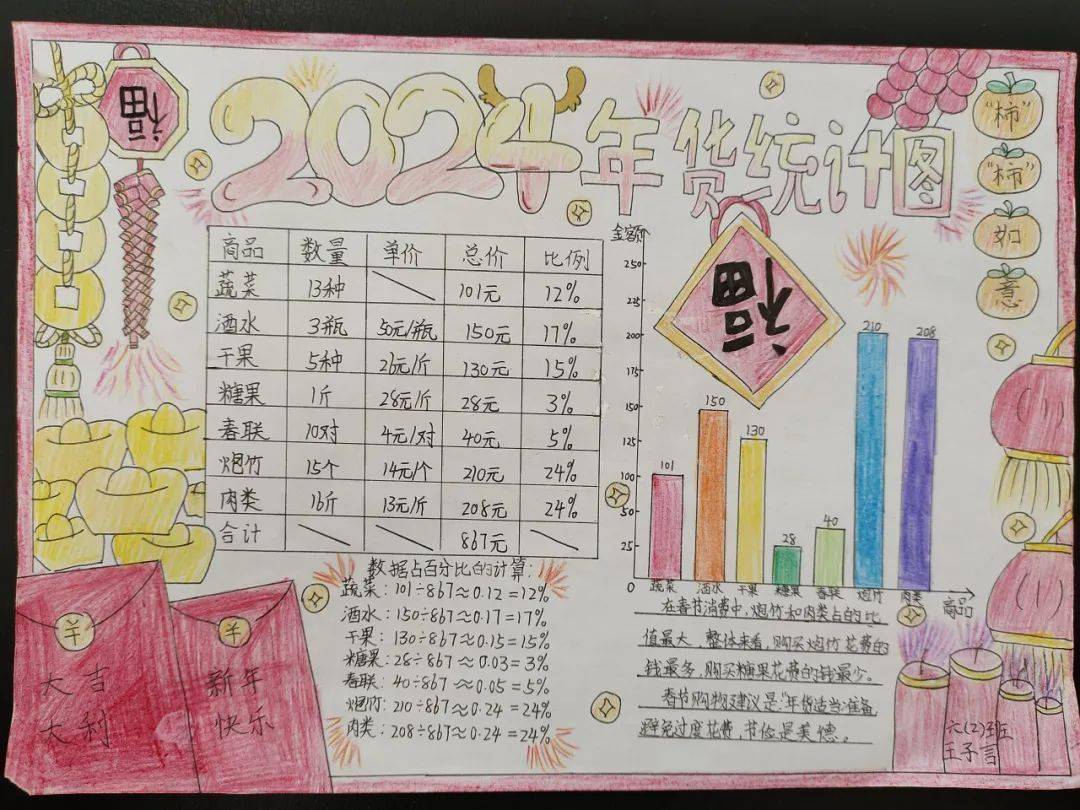 2024年货统计图
福
"柿"
"柿"
如
意
商品 数量 单价 总价 比例
蔬菜 13种 101元 12%
酒水 3瓶 50元/瓶 150元 17%
干果 5种 26元/斤 130元 15%
糖果 1斤 28元/斤 28元 3%
春联 10对 4元/对 40元 5%
炮竹 15个 14元/个 210元 24%
肉类 16斤 13元/斤 208元 24%
合计 867元
金额
250
225
200
175
150
125
100
50
25
0
101
150
130
28
40
210
208
蔬菜 酒水 干果 糖果 春联 炮竹 肉类
商品
福
数据占百分比的计算:
蔬菜:101÷867≈0.12=12%
酒水:150÷867≈0.17=17%
干果:130÷867≈0.15=15%
糖果:28÷867≈0.03=3%
春联:40÷867≈0.05=5%
炮竹:210÷867≈0.24=24%
肉类:208÷867≈0.24=24%
在春节消费中,炮竹和肉类占的比
值最大。整体来看,购买炮竹花费的
钱最多,购买糖果花费的钱最少。
春节购物建议是:年货适当准备
避免过度花费,节俭是美德。
¥
大吉
大利
¥
新年
快乐
六(2)班
王子言